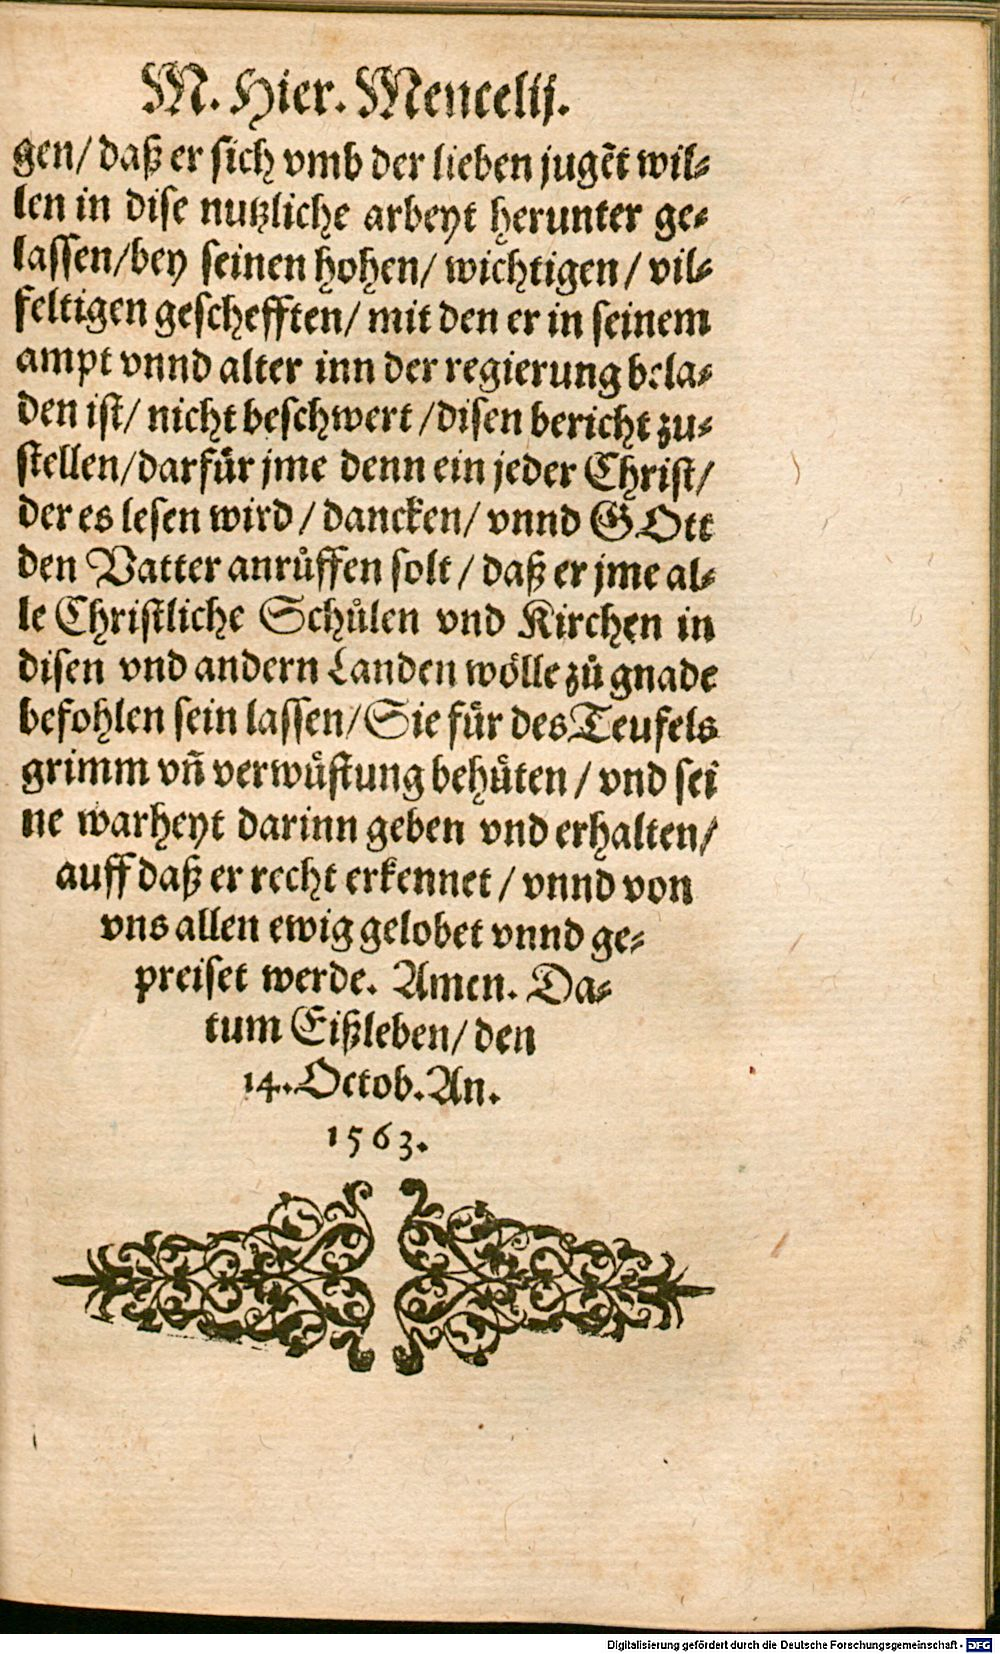 M. Hier. Mencelij.
gen/ daß er sich vmb der lieben jugẽt wil⸗
len in dise nutzliche arbeyt herunter ge⸗
lassen/bey seinen hohen/ wichtigen/ vil⸗
feltigen geschefften/ mit den er in seinem
ampt vnnd alter inn der regierung bela⸗
den ist/ nicht beschwert /disen bericht zu⸗
stellen/darfür jme denn ein jeder Christ/
der es lesen wird/ dancken/ vnnd GOtt
den Vatter anrůffen solt/ daß er jme al⸗
le Christliche Schůlen vnd Kirchen in
disen vnd andern Landen wölle zů gnade
befohlen sein lassen/ Sie für des Teufels
grimm vñ verwüstung behüten/ vnd sei
ne warheyt darinn geben vnd erhalten/
auff daß er recht erkennet/ vnnd von
vns allen ewig gelobet vnnd ge⸗
preiset werde. Amen. Da⸗
tum Eißleben/ den
14. Octob. An.
1563.
Digitalisierung gefördert durch die Deutsche Forschungsgemeinschaft - DFG